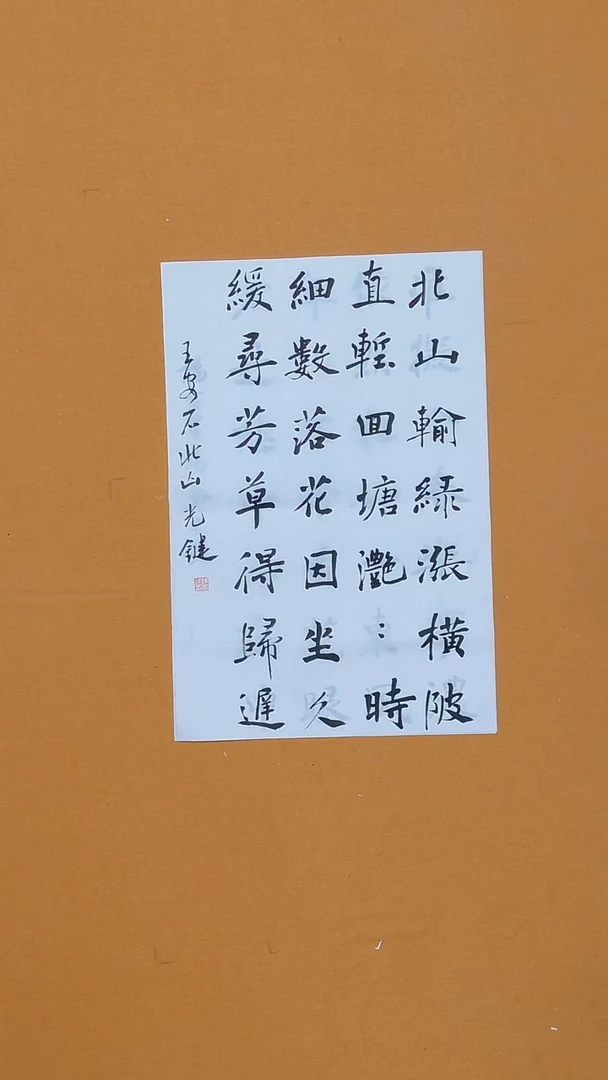 北山輸緑漲橫陂
直塹回塘灔〻時
細數落花因坐久
緩尋芳草得歸遲
王安石北山 光鍵